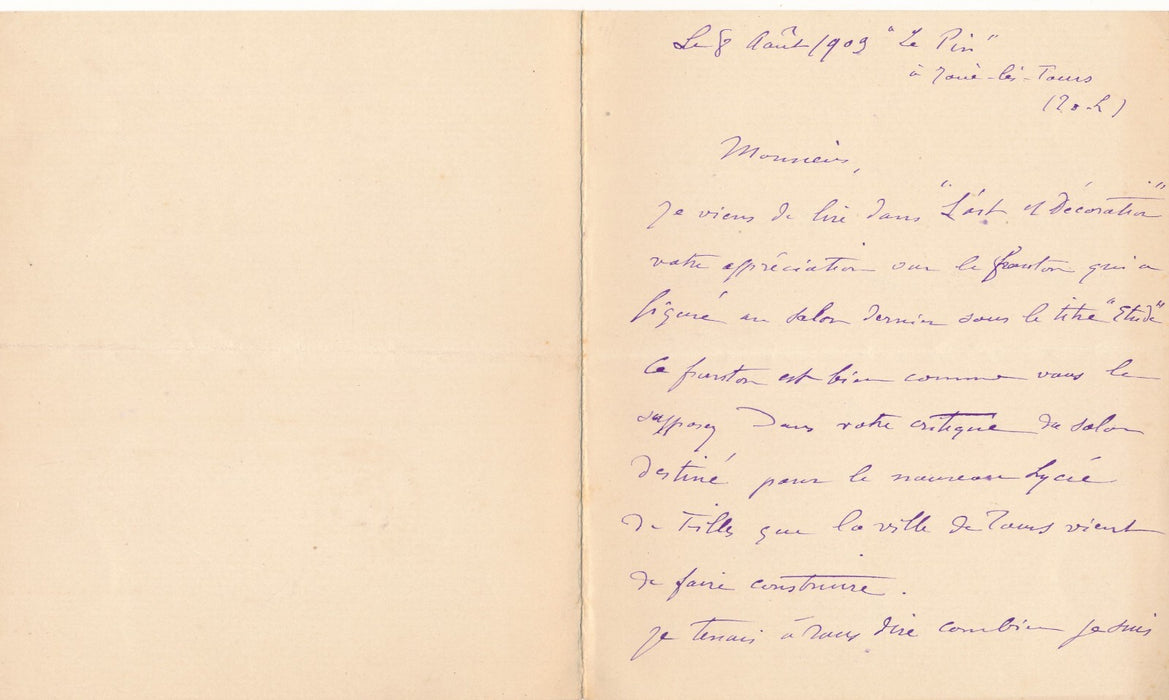 Le 8 Août 1909 "Le Pin"
à Joué-lès-Tours
(I-&-L)
Monsieur,
Je viens de lire dans "L'art et Décoration"
votre appréciation sur le fronton qui a
figuré au salon dernier sous le titre "Etude"
Ce fronton est bien comme vous le
supposez Dans votre critique du salon
destiné pour le nouveau Lycée
de Filles que la ville de Tours vient
de faire construire.
Je tenais à vous dire combien je suis